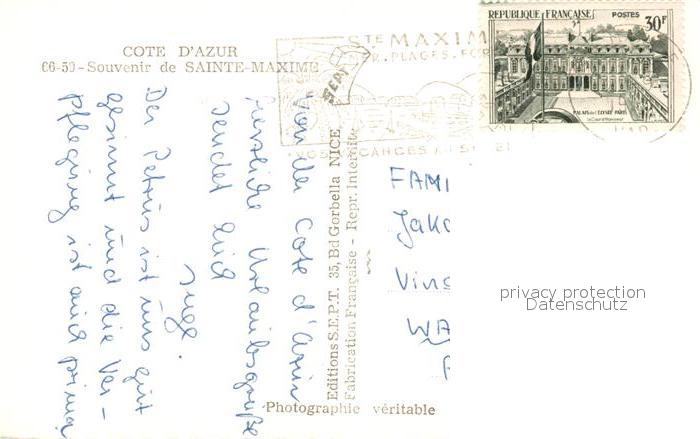 COTE D'AZUR
06-59 - Souvenir de SAINTE-MAXIME
Von der Cote d'Azur
herzliche Urlaubsgrüße
sendet Euch
Der Petrus ist uns gut
gesinnt und die Ver-
pflegung ist auch prima
Editions S.E.P.T. 35, Bd Gorbella NICE
Fabrication Française - Repr. Interdite
Photographie véritable
STE MAXIM
VOS VACANCES
SEPT
REPUBLIQUE FRANÇAISE
POSTES
30F
PALAIS DE L'ELYSEE PARIS
FAMI
Jako
Vinc
WA
privacy protection
Datenschutz